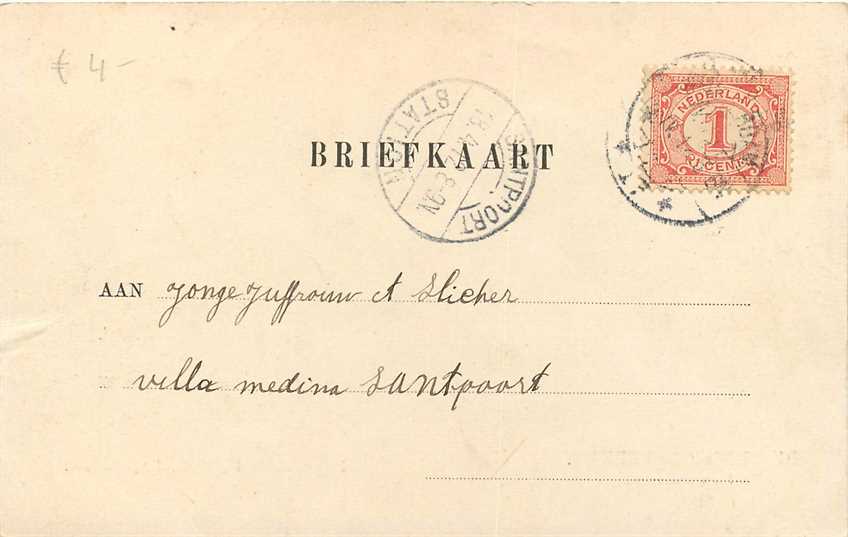 € 4-
NEDERLAND
1
CENT
SANTPOORT
STATION
BRIEFKAART
AAN Jonge Juffrouw A Slicher
villa medina Santpoort